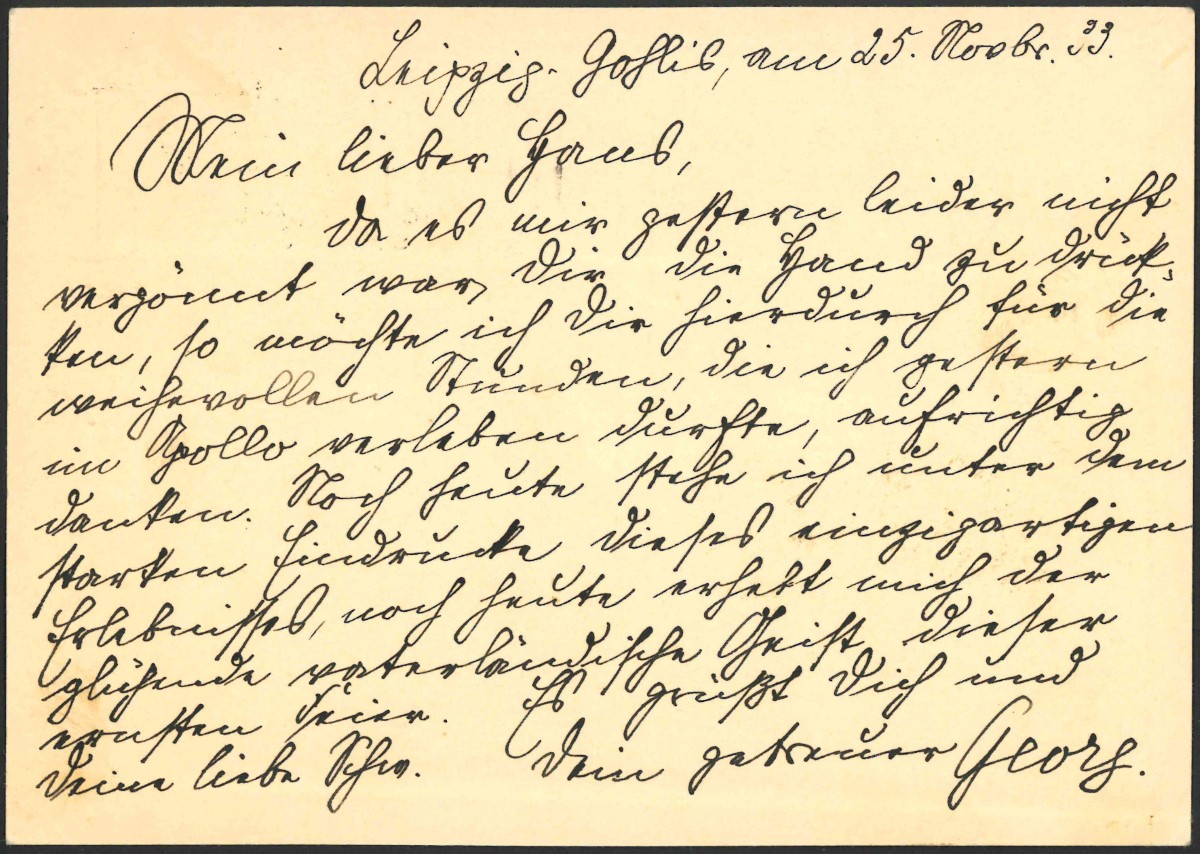 Leipzig-Gohlis, am 25. Novbr. 33.
Mein lieber Hans,
da es mir gestern leider nicht
vergönnt war, Dir die Hand zu drük-
ken, so möchte ich Dir hierdurch für die
weihevollen Stunden, die ich gestern
im Apollo verleben durfte, aufrichtig
danken. Noch heute stehe ich unter dem
starken Eindrucke dieses einzigartigen
Erlebnisses, noch heute erhebt mich der
glühende vaterländische Geist dieser
ernsten Feier. Es grüßt Dich und
Deine liebe Schw. Dein getreuer Georg.